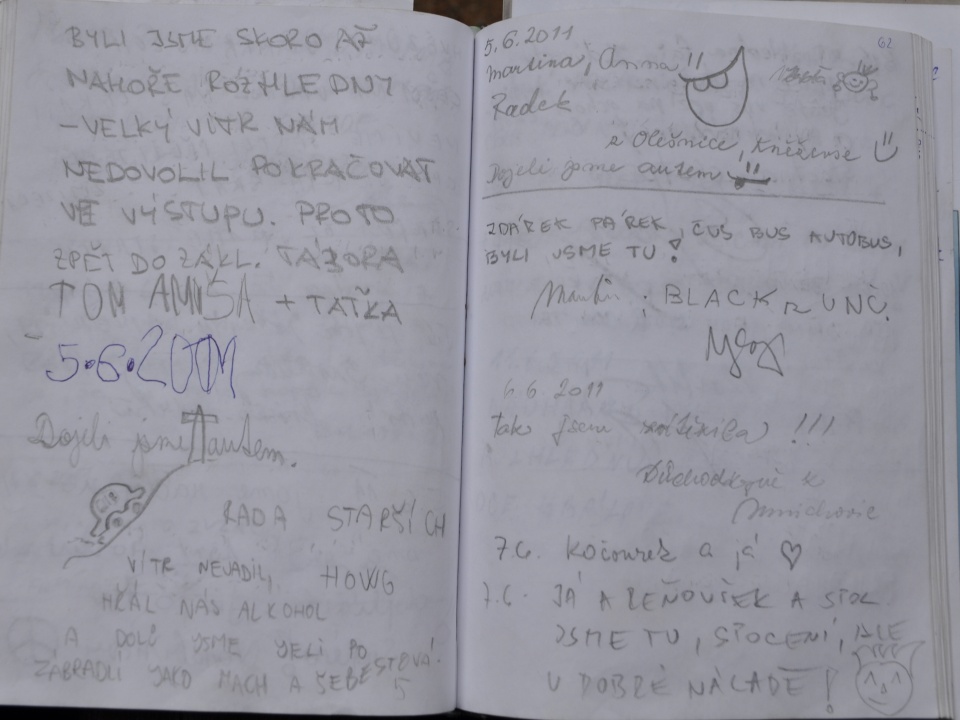 BYLI JSME SKORO AŽ
NAHOŘE ROZHLEDNY
-VELKÝ VÍTR NÁM
NEDOVOLIL POKRAČOVAT
VE VÝSTUPU. PROTO
ZPĚT DO ZÁKL. TÁBORA
TOM AMÍŠA + TAŤKA
5.6.2011
Dojeli jsme autem.
RADA STARŠÍCH
VÍTR NEVADIL, HOWG
HŘÁL NÁS ALKOHOL
A DOLŮ JSME JELI PO
ZÁBRADLÍ JAKO MACH A ŠEBESTOVÁ.
62
5.6.2011
Martina, Anna
Radek
z Olešnice, Kněževse
Dojeli jsme autem
ZDÁREK PÁREK, ČUS BUS AUTOBUS,
BYLI JSME TU!
Martin; BLACK RUNČ.
6.6 2011
tak jsem !!!
7.6. Kocourek a já ♡
7.6. JÁ A ZEŇOUŠEK A STOL
JSME TU, STOČENÍ, ALE
V DOBRÉ NÁLADĚ!